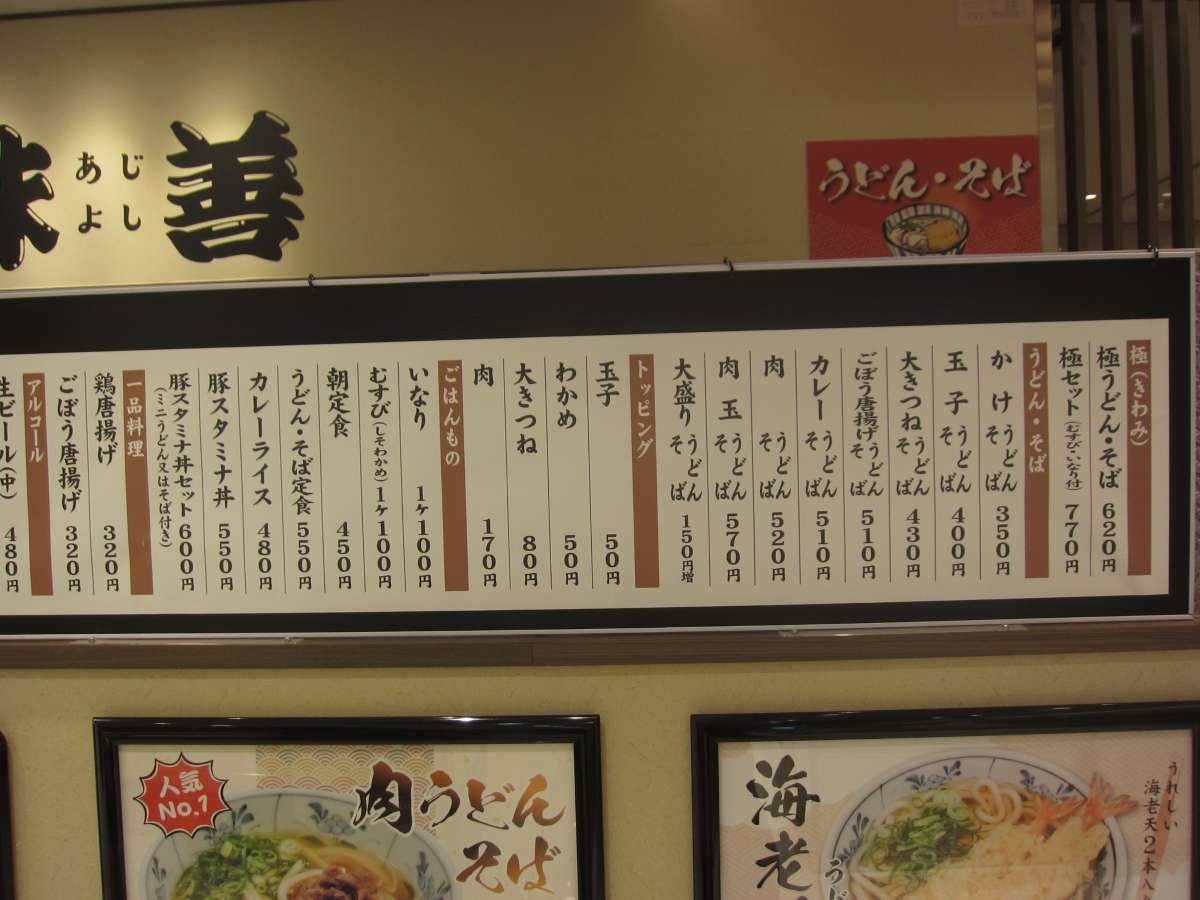 味善
あじ
よし
うどん・そば
極(きわみ)
極うどん・そば 620円
極セット(むすび・いなり付) 770円
うどん・そば
かけ うどん そば 350円
玉子 うどん そば 400円
大きつね うどん そば 430円
ごぼう唐揚げ うどん そば 510円
カレー うどん そば 510円
肉 うどん そば 520円
肉玉 うどん そば 570円
大盛り うどん そば 150円増
トッピング
玉子 50円
わかめ 50円
大きつね 80円
肉 170円
ごはんもの
いなり 1ヶ100円
むすび(しそわかめ) 1ヶ100円
朝定食 450円
うどん・そば定食 550円
カレーライス 480円
豚スタミナ丼 550円
豚スタミナ丼セット 600円
(ミニうどん又はそば付き)
一品料理
鶏唐揚げ 320円
ごぼう唐揚げ 320円
アルコール
生ビール(中) 480円
人気
No.1
肉うどん
そば
海老
うど
うれしい
海老天2本入